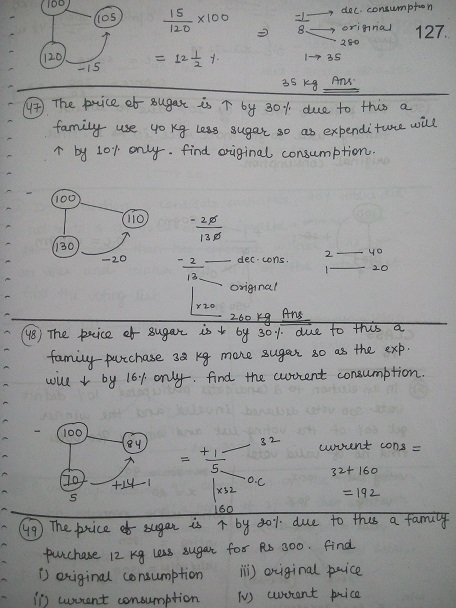 100
105
120
-15
15/120 x100
= 12 1/2 %
⇒
-1 → dec. consumption
8 → original
280
1 → 35
35 kg Ans
127.
47 The price of sugar is ↑ by 30% due to this a
family use 40 kg less sugar so as expenditure will
↑ by 10% only. find original consumption.
100
110
130
-20
-20/130
-2 — dec. cons.
13 original
x20
260 kg Ans
2 — 40
1 — 20
48 The price of sugar is ↓ by 30% due to this a
family purchase 32 kg more sugar so as the exp.
will ↓ by 16% only. find the current consumption.
100
84
70
5
+14 1
= +1/5
32
O.C
x32
160
current cons =
32+160
= 192
49 The price of sugar is ↑ by 20% due to this a family
purchase 12 kg less sugar for Rs 300. find
i) original consumption iii) original price
ii) current consumption iv) current price